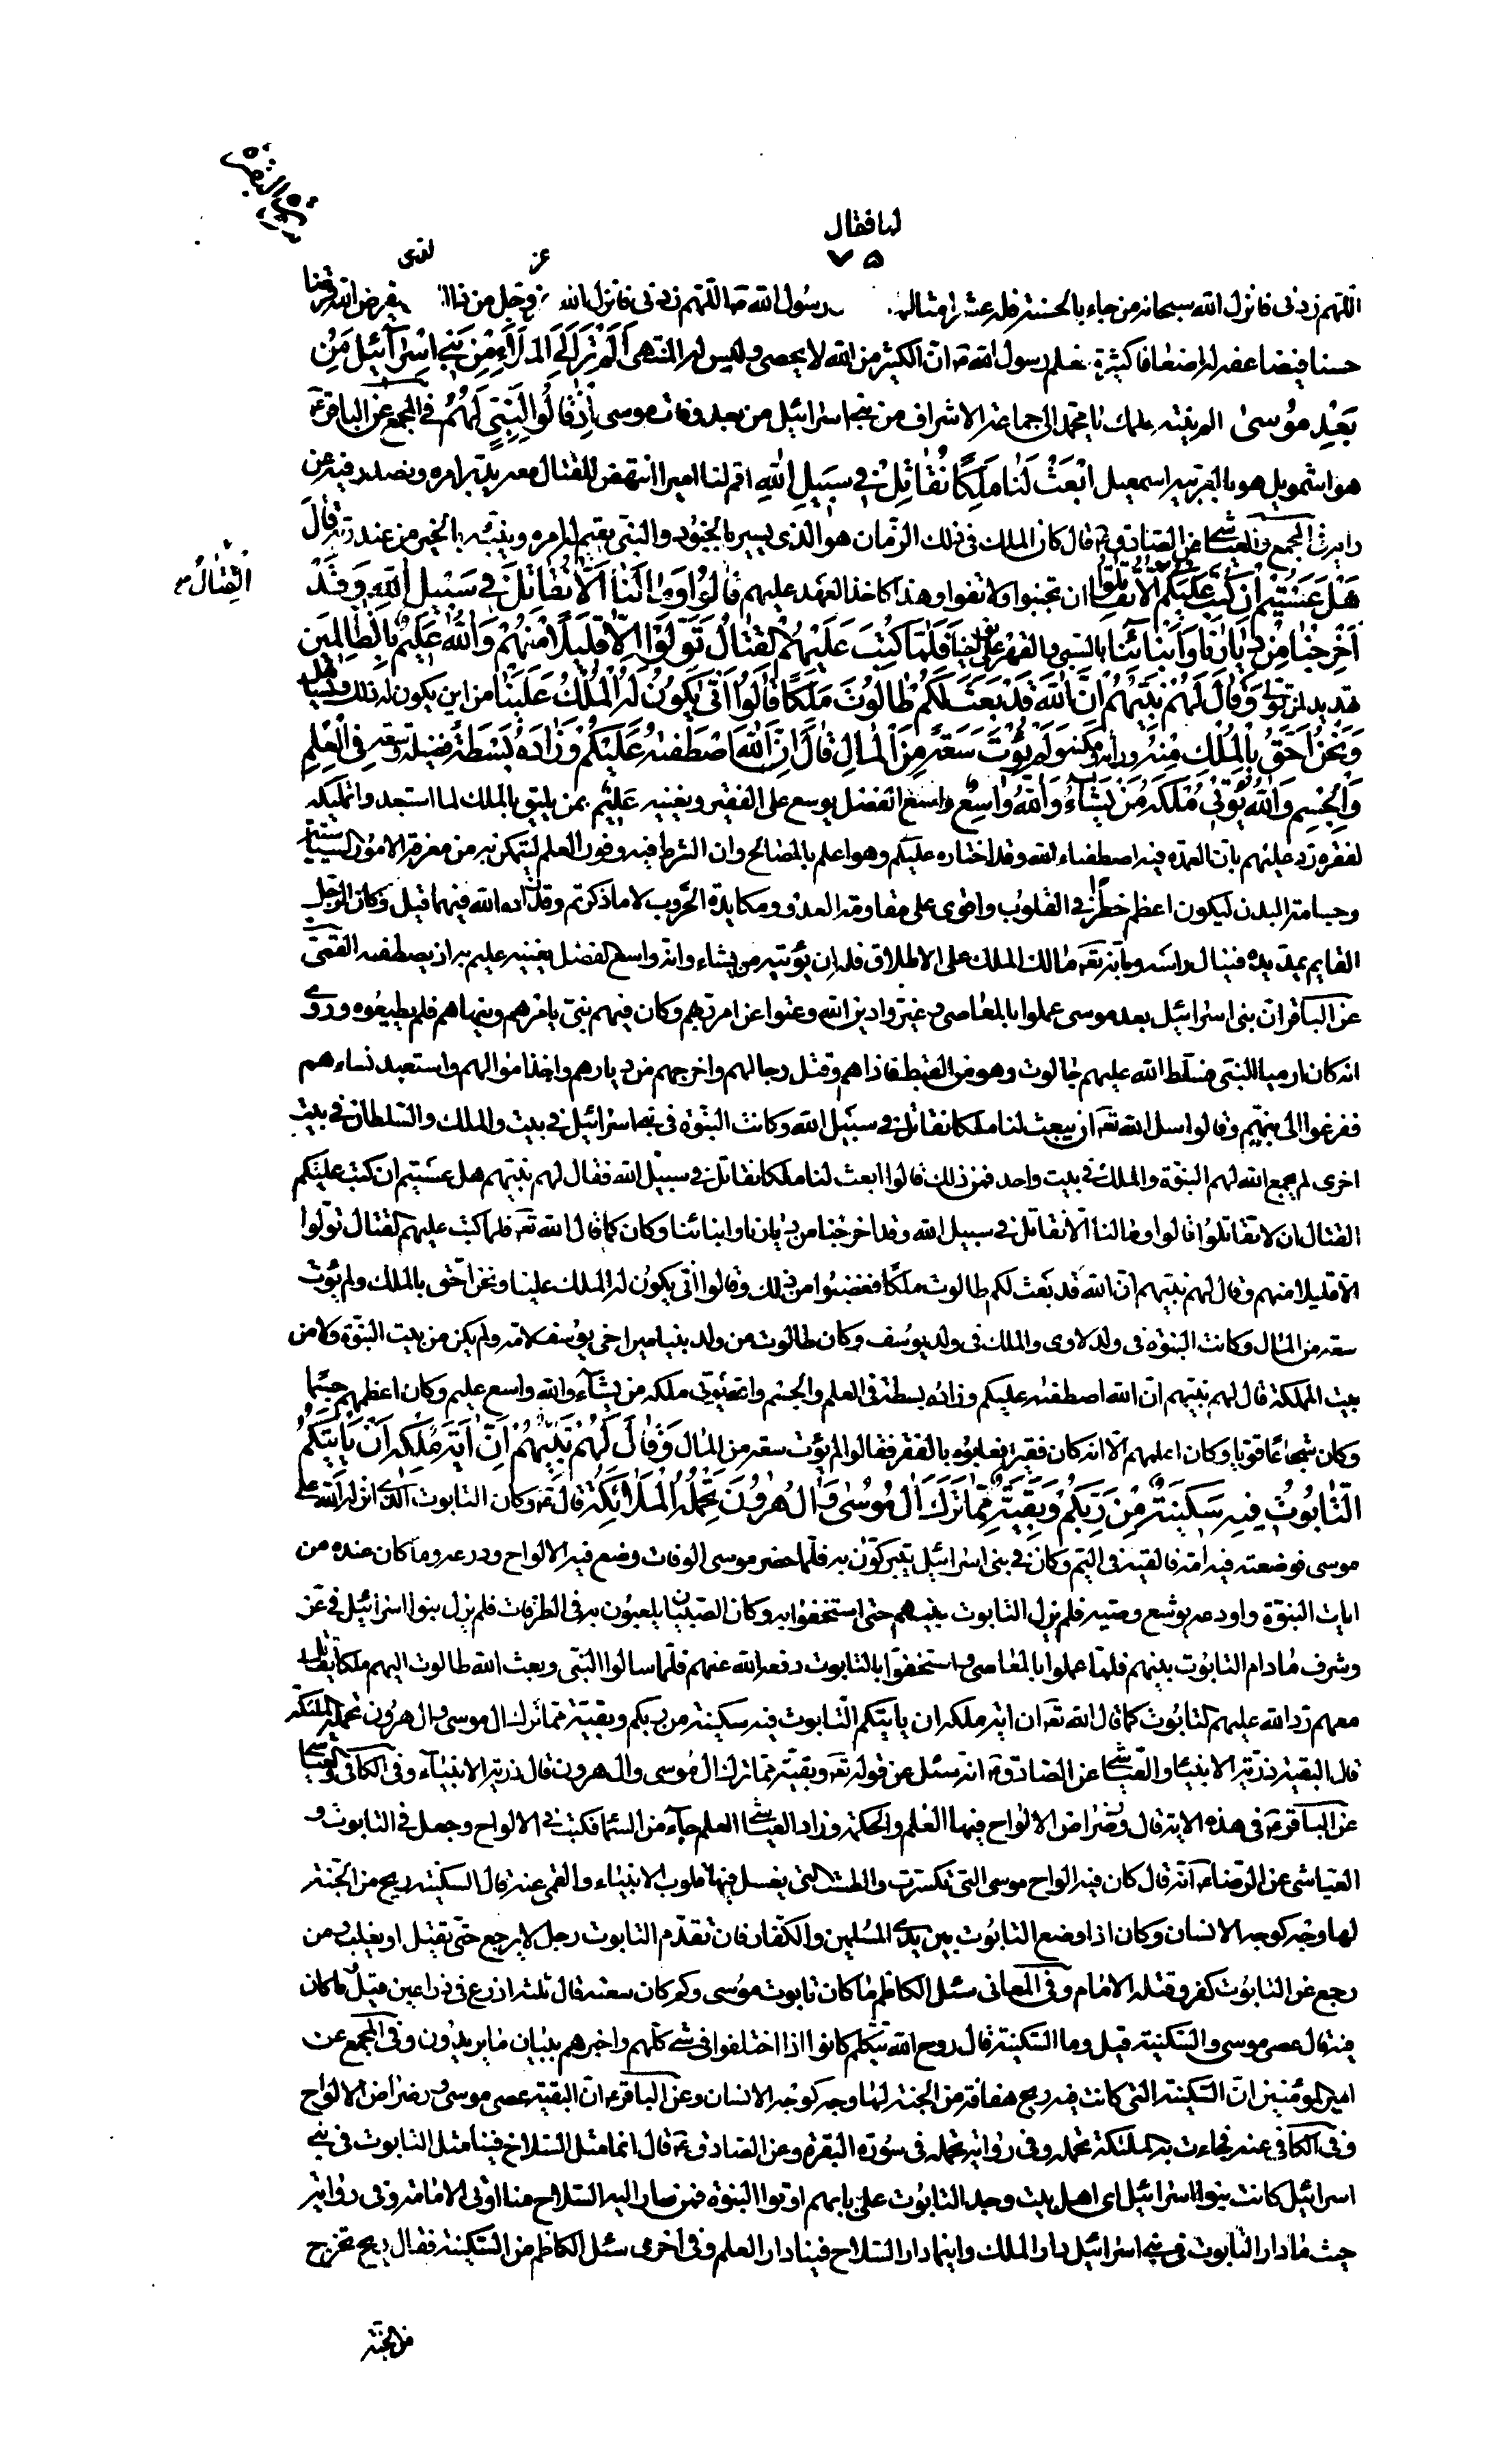 سورة البقرة
لها فقال
۷۵
اللّهم زدنى فانزل الله سبحانه من جاء بالحسنة فله عشر امثالها رسول الله ص اللّهم زدنى فانزل الله عز وجل من ذا الذى يقرض الله قرضا
حسنا فيضاعفه له اضعافا كثيرة فعلم رسول الله ص انّ الكثير من الله لا يحصى وليس له المنتهى اَلَمْ تَرَ اِلَى الْمَلَاءِ مِنْ بَنِي اِسْرآئيلَ مِنْ
بَعْدِ مُوسىٰ الم ينته علمك يا محمّد الى جماعة الاشراف من بنى اسرائيل من بعد وفات موسى اِذْ قالُوا لِنَبِيٍّ لَهُمُ فى المجمع عن الباقر ع
هو اشمويل هو بالعربيه اسمعيل ابْعَثْ لَنا مَلِكًا نُقاتِلْ في سَبيلِ اللّهِ اقم لنا اميرا انتهض للقتال معه يدبّر امره ونصدر فيه عن
رايه فى المجمع والعياشى عن الصادق ع قال كان الملك فى ذلك الزّمان هو الذى يسير بالجنود والنبى يقيم له امره وينبئه بالخبر من عند ربّه قالَ
هَلْ عَسَيْتُمْ اِنْ كُتِبَ عَلَيْكُمُ الْقِتالُ اَلّا تُقاتِلُوا ان تجبنوا ولا تفوا وهذا كاخذ العهد عليهم قالُوا وَما لَنا اَلّا نُقاتِلَ في سَبيلِ اللّهِ وَقَدْ
اُخْرِجْنا مِنْ دِيارِنا وَاَبْنآئِنا بالسبى والقهر على فَلَمّا كُتِبَ عَلَيْهِمُ الْقِتالُ تَوَلَّوْا اِلّا قَليلًا مِنْهُمْ وَاللّهُ عَليمٌ بِالظّالِمينَ
تهديد لمن تولى وَقالَ لَهُمْ نَبِيُّهُمْ اِنَّ اللّهَ قَدْ بَعَثَ لَكُمْ طالُوتَ مَلِكًا قالُوا اَنّى يَكُونُ لَهُ الْمُلْكُ عَلَيْنا من اين يكون له ذلك
وَنَحْنُ اَحَقُّ بِالْمُلْكِ مِنْهُ وراثة ومكنة وَلَمْ يُؤْتَ سَعَةً مِنَ الْمالِ قالَ اِنَّ اللّهَ اصْطَفيهُ عَلَيْكُمْ وَزادَهُ بَسْطَةً فضيلة وسعة فِي الْعِلْمِ
وَالْجِسْمِ وَاللّهُ يُؤْتي مُلْكَهُ مَنْ يَشآءُ وَاللّهُ واسِعٌ واسع الفضل يوسع على الفقير ويغنيه عَليمٌ بمن يليق بالملك لما استبعدوا تملكه
لفقره ردّ عليهم بان العمدة فيه اصطفاء الله وقد اختاره عليكم وهو اعلم بالمصالح وان الشرط فيه وفور العلم ليتمكن به من معرفة الامور السياسية
وجسامة البدن ليكون اعظم خطرا فى القلوب واقوى على مقاومة العدو ومكايدة الحروب لا ما ذكرتم وقد زاده الله فيهما قيل وكان الرجل
القايم يمد يده فينال راسه وبانه تعه مالك الملك على الاطلاق فله ان يؤتيه من يشاء وانه واسع الفضل يغنيه عليم به اذ يصطفيه القمّى
عن الباقر انّ بنى اسرائيل بعد موسى عملوا بالمعاصى وغيّروا دين الله وعتوا عن امر ربّهم وكان فيهم نبىّ يامرهم وينهاهم فلم يطيعوه وروى
انه كان ارميا النبى فسلّط الله عليهم جالوت وهو من القبط فاذاهم وقتل رجالهم واخرجهم من ديارهم واخذ اموالهم واستعبد نساءهم
ففزعوا الى نبيّهم وقالوا سل الله تعه ان يبعث لنا ملكا نقاتل فى سبيل الله وكانت النبوّة فى بنى اسرائيل فى بيت والملك والسلطان فى بيت
اخرى لم يجمع الله لهم النبوّة والملك فى بيت واحد فمن ذلك قالوا ابعث لنا ملكا نقاتل فى سبيل الله فقال لهم نبيّهم هل عسيتم ان كتب عليكم
القتال ان لا تقاتلوا قالوا وما لنا الّا نقاتل فى سبيل الله وقد اخرجنا من ديارنا وابنائنا وكان كما قال الله تعه فلما كتب عليهم القتال تولّوا
الّا قليلا منهم وقال لهم نبيّهم انّ الله قد بعث لكم طالوت ملكًا فغضبوا من ذلك وقالوا انّى يكون له الملك علينا ونحن احقّ بالملك ولم يؤت
سعة من المال وكانت النبوّة فى ولد لاوى والملك فى ولد يوسف وكان طالوت من ولد بنيامين اخى يوسف لامّه ولم يكن من بيت النبوّة ولا من
بيت المملكة قال لهم نبيّهم انّ الله اصطفيه عليكم وزاده بسطة فى العلم والجسم والله يؤتى ملكه من يشآء والله واسع عليم وكان اعظمهم جسما
وكان شجاعًا قويا وكان اعلمهم الّا انه كان فقيرا فعابوه بالفقر فقالوا لم يؤت سعة من المال وَقالَ لَهُمْ نَبِيُّهُمْ اِنَّ ايَةَ مُلْكِهِ اَنْ يَأْتِيَكُمُ
التّابُوتُ فيهِ سَكينَةٌ مِنْ رَبِّكُمْ وَبَقِيَّةٌ مِمّا تَرَكَ الُ مُوسى وَالُ هرُونَ تَحْمِلُهُ الْمَلآئِكَةُ قال ع وكان التابوت الذى انزله الله على
موسى فوضعته فيه امّه فالقيه فى اليمّ وكان فى بنى اسرائيل يتبركون به فلمّا حضر موسى الوفات وضع فيه الالواح ودرعه وما كان عنده من
ايات النبوّة واودعه يوشع وصيه فلم يزل التابوت بينهم حتى استخفوا به وكان الصبيان يلعبون به فى الطرقات فلم يزل بنوا اسرائيل فى عز
وشرف مادام التابوت بينهم فلمّا عملوا بالمعاصى واستخفوا بالتابوت رفعه الله عنهم فلمّا سالوا النبى وبعث الله طالوت اليهم ملكا يقاتل
معهم ردّ الله عليهم التابوت كما قال الله تعه ان اية ملكه ان ياتيكم التابوت فيه سكينة من ربكم وبقيّة ممّا ترك ال موسى وال هرون تحمله الملئكة
قال البقية ذرّيّة الانبياء والعيّاشى عن الصادق ع انه سئل عن قوله تعه وبقيّة ممّا ترك ال موسى وال هرون قال ذرية الانبياء وفى الكافى والعياشى
عن الباقر ع فى هذه الاية قال رضراض الالواح فيها العلم والحكمة وزاد العياشى العلم جاء من السماء فكتب فى الالواح وجعل فى التابوت و
العيّاشى عن الرضا ع انّه قال كان فيه الواح موسى التى تكسرت والطشت التى يغسل فيها قلوب الانبياء والقمى عنه قال السكينة ريح من الجنّة
لها وجه كوجه الانسان وكان اذا وضع التابوت بين يدى المسلمين والكفّار فان تقدّم التابوت رجل لا يرجع حتّى يقتل او يغلب ومن
رجع عن التابوت كفر وقتله الامام وفى المعانى سئل الكاظم ما كان تابوت موسى وكم كان سعته قال ثلثة اذرع فى ذراعين قيل ما كان
فيه قال عصى موسى والسّكينة قيل وما السّكينة قال روح الله يتكلم كانوا اذا اختلفوا فى شئ كلّمهم واخبرهم ببيان ما يريدون وفى المجمع عن
امير المؤمنين انّ السّكينة التى كانت فيه ريح هفافة من الجنة لها وجه كوجه الانسان وعن الباقر ع انّ البقية عصى موسى ورضراض الالواح
وفى الكافى عنه فجاءت به الملئكة تحمله وفى رواية تحمله فى سورة البقرة وعن الصادق ع قال انما مثل السّلاح فينا مثل التابوت فى بنى
اسرائيل كانت بنوا اسرائيل اى اهل بيت وجد التابوت على بابهم اوتوا النبوة فمن صار اليه السّلاح منا اوتى الامامة وفى رواية
حيث ما دار التابوت فى بنى اسرائيل دار الملك واينما دار السّلاح فينا دار العلم وفى اخرى سئل الكاظم عن السّكينة فقال ريح تخرج
من الجنة